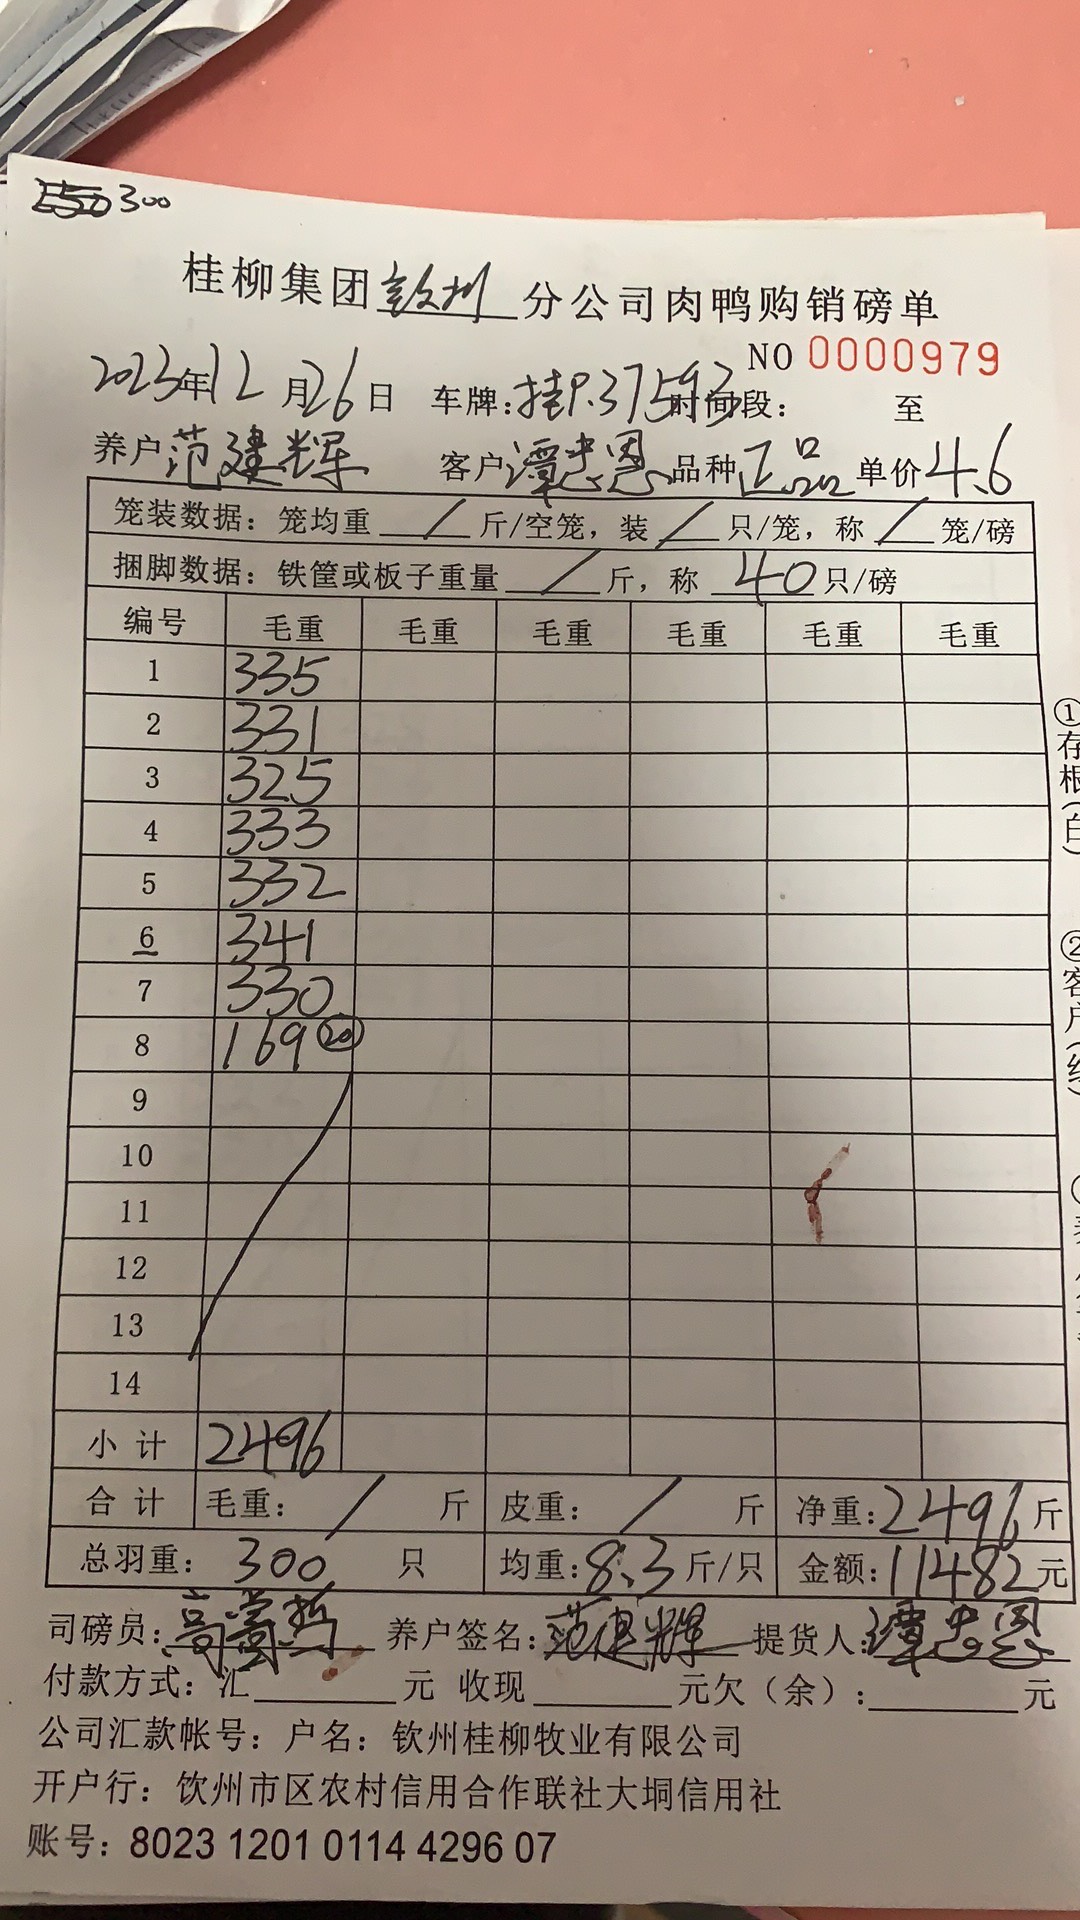 300
桂柳集团钦州分公司肉鸭购销磅单
NO 0000979
2023年12月26日 车牌:桂P.37593 时间段: 至
养户范建辉 客户谭忠恩 品种正品 单价4.6
笼装数据: 笼均重 / 斤/空笼, 装 / 只/笼, 称 / 笼/磅
捆脚数据: 铁筐或板子重量 / 斤, 称 40 只/磅
编号 毛重 毛重 毛重 毛重 毛重 毛重
1 335
2 331
3 325
4 333
5 332
6 341
7 330
8 169 20
9
10
11
12
13
14
小计 2496
合计 毛重: / 斤 皮重: / 斤 净重:2496斤
总羽重: 300 只 均重:8.3斤/只 金额:11482元
司磅员: 养户签名:范建辉 提货人:谭忠恩
付款方式: 汇 元 收现 元欠(余): 元
公司汇款帐号: 户名: 钦州桂柳牧业有限公司
开户行: 饮州市区农村信用合作联社大垌信用社
账号: 8023 1201 0114 4296 07
①存根(白)
②客户(红)